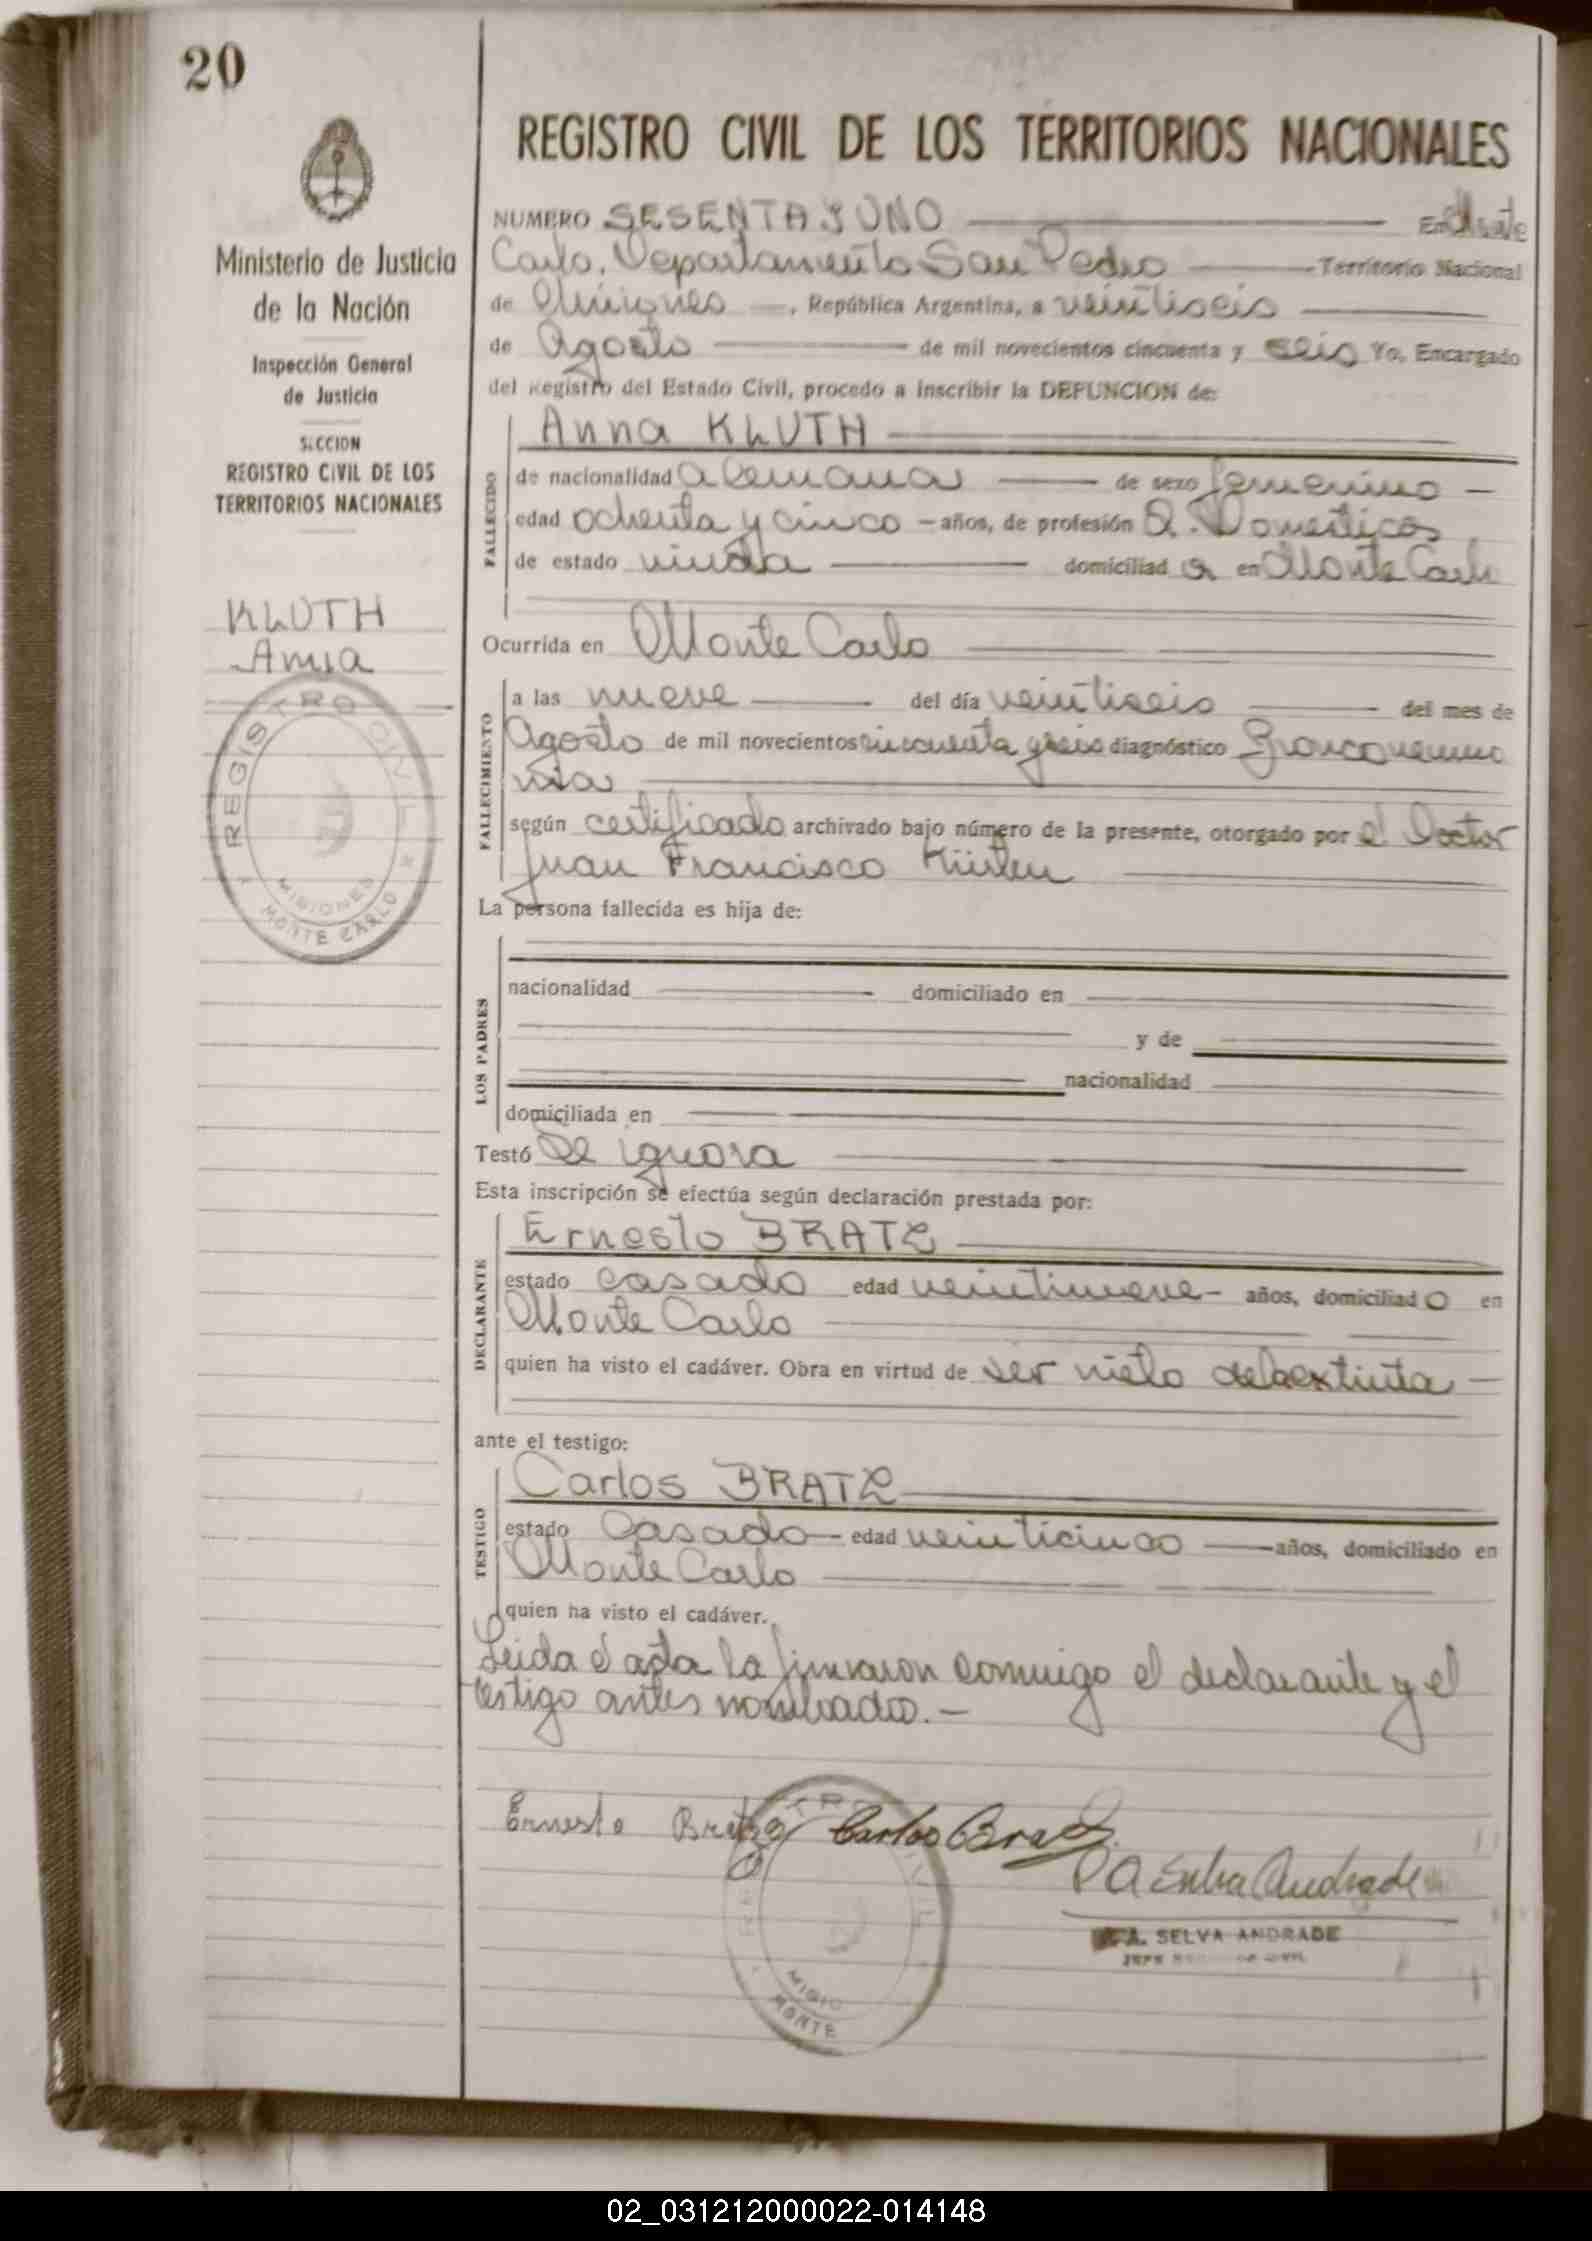 20
Ministerio de Justicia
de la Nación
Inspección General
de Justicia
SECCION
REGISTRO CIVIL DE LOS
TERRITORIOS NACIONALES
KLUTH
Anna
REGISTRO CIVIL
MISIONES
MONTE CARLO
REGISTRO CIVIL DE LOS TERRITORIOS NACIONALES
NUMERO SESENTA Y UNO En Monte
Carlo, Departamento San Pedro Territorio Nacional
de Misiones, República Argentina, a veintiseis
de Agosto de mil novecientos cincuenta y seis Yo, Encargado
del Registro del Estado Civil, procedo a inscribir la DEFUNCION de:
FALLECIDO
Anna KLUTH
de nacionalidad alemana de sexo femenino
edad ochenta y cinco años, de profesión Q. Domésticos
de estado viuda domiciliad a en Monte Carlo
Ocurrida en Monte Carlo
FALLECIMIENTO
a las nueve del día veintiseis del mes de
Agosto de mil novecientos cincuenta y seis diagnóstico Bronconeumo
nia
según certificado archivado bajo número de la presente, otorgado por el Doctor
Juan Francisco
La persona fallecida es hija de:
LOS PADRES
nacionalidad domiciliado en
y de
nacionalidad
domiciliada en
Testó Se ignora
Esta inscripción se efectúa según declaración prestada por:
DECLARANTE
Ernesto BRATZ
estado casado edad veintinueve años, domiciliad o en
Monte Carlo
quien ha visto el cadáver. Obra en virtud de ser nieto de la extinta
ante el testigo:
TESTIGO
Carlos BRATZ
estado Casado edad veinticinco años, domiciliado en
Monte Carlo
quien ha visto el cadáver.
Leida el acta la firmaron conmigo el declarante y el
testigo antes nombrados.-
Ernesto Bratz Carlos Bratz
A. Selva Andrade
A. SELVA ANDRADE
02_031212000022-014148